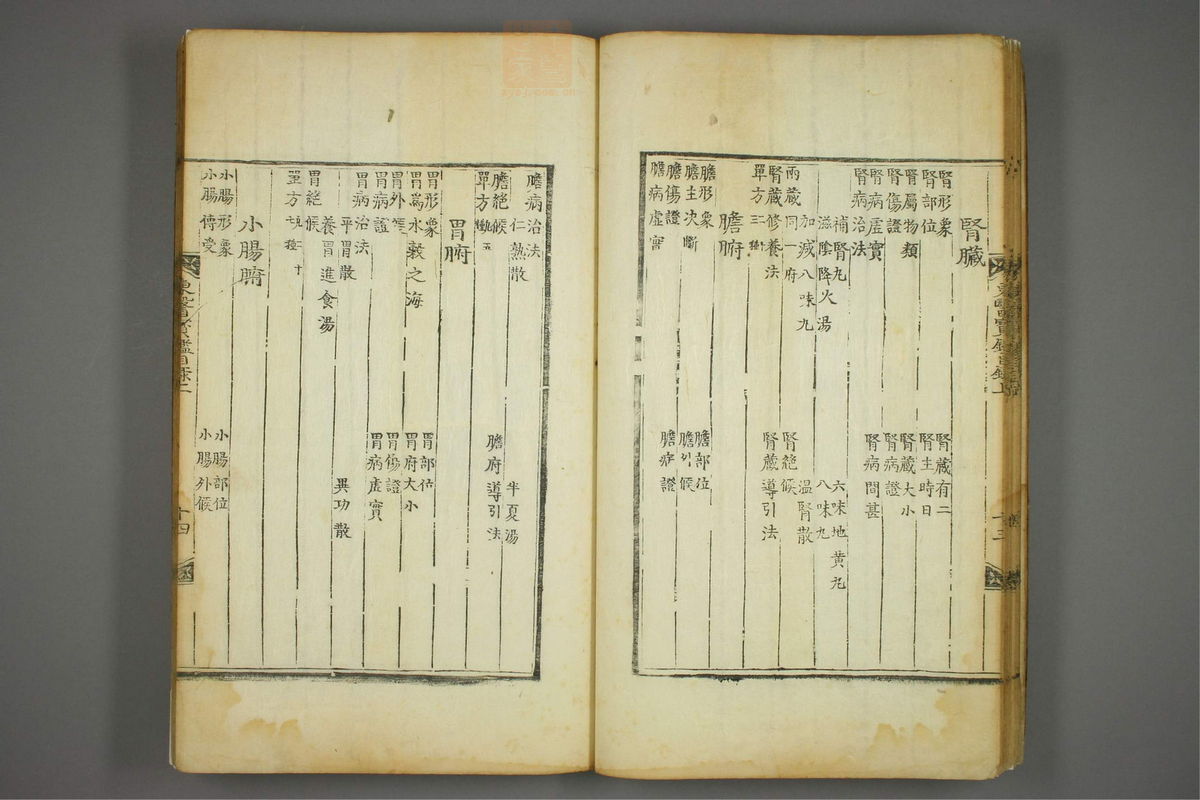 腎臟
腎形象 腎藏有二
腎部位 腎主時日
腎屬物類 腎藏大小
腎傷證 腎病證
腎病虛實 腎病間甚
腎病治法
補腎丸 六味地黃丸
滋陰降火湯 八味丸
加減八味丸 溫腎散
兩藏同一府 腎絕候
腎藏修養法 腎藏導引法
單方
膽腑
膽形象 膽部位
膽主決斷 膽外候
膽傷證 膽病證
膽病虛實
膽病治法
仁熟散 半夏湯
膽絕候 膽府導引法
單方
胃腑
胃形象 胃部位
胃爲水穀之海 胃府大小
胃外候 胃傷證
胃病證 胃病虛實
胃病治法
平胃散 異功散
養胃進食湯
胃絕候
單方
小腸腑
小腸形象 小腸部位
小腸傳受 小腸外候
東醫寶鑑目錄 十四